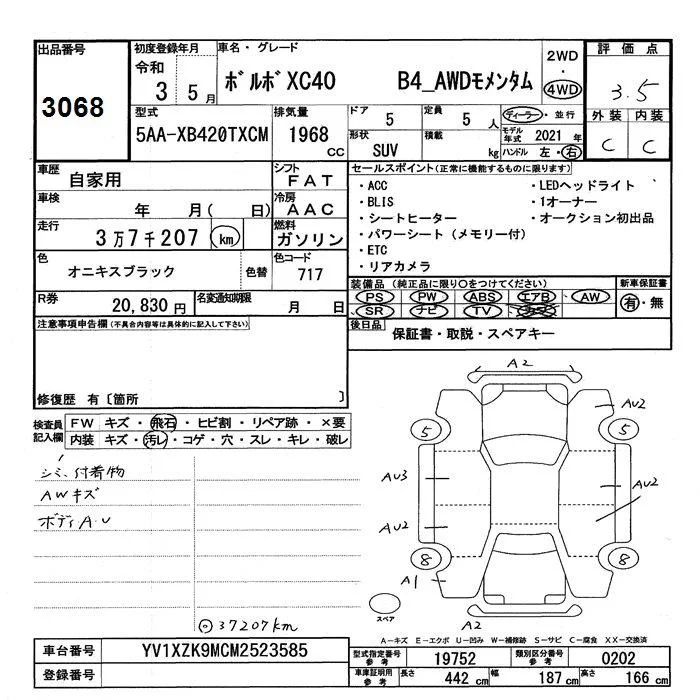 出品番号
3068
初度登録年月
令和
3 5月
車名・グレード
ボルボXC40 B4_AWDモメンタム
2WD
・
4WD
評価点
3.5
外装 内装
C C
型式
5AA-XB420TXCM
排気量
1968
CC
ドア
5
定員
5 人
ディーラー・並行
形状
SUV
積載
kg
モデル年式 2021 年
ハンドル 左・右
車歴
自家用
シフト
FAT
車検
年 月( 日)
冷房
AAC
走行
3万7千207 km
燃料
ガソリン
色
オニキスブラック
色替
色コード
717
R券
20,830 円
名変通知期限
月 日
セールスポイント(正常に機能するものに限ります)
・ACC
・BLIS
・シートヒーター
・パワーシート(メモリー付)
・ETC
・リアカメラ
・LEDヘッドライト
・1オーナー
・オークション初出品
装備品(純正品に限り○をつけてください)
PS PW ABS エアB AW
SR ナビ TV
新車保証書
有・無
後日品
保証書・取説・スペアキー
注意事項申告欄(不具合内容等は具体的に記入して下さい)
修復歴 有〔箇所 〕
検査員記入欄
FW キズ・飛石・ヒビ割・リペア跡・×要
内装 キズ・汚レ・コゲ・穴・スレ・キレ・破レ
シミ、付着物
AWキズ
ボディA・U
37207km
A2
AU2
5
5
AU3
AU2
AU2
8
8
A1
スペア
A2
A-キズ E-エクボ U-凹み W-補修跡 S-サビ C-腐食 XX-交換済
車台番号
YV1XZK9MCM2523585
登録番号
型式指定番号
参考
19752
類別区分番号
参考
0202
車庫証明用
参考
長さ
442 cm
幅
187 cm
高さ
166 cm